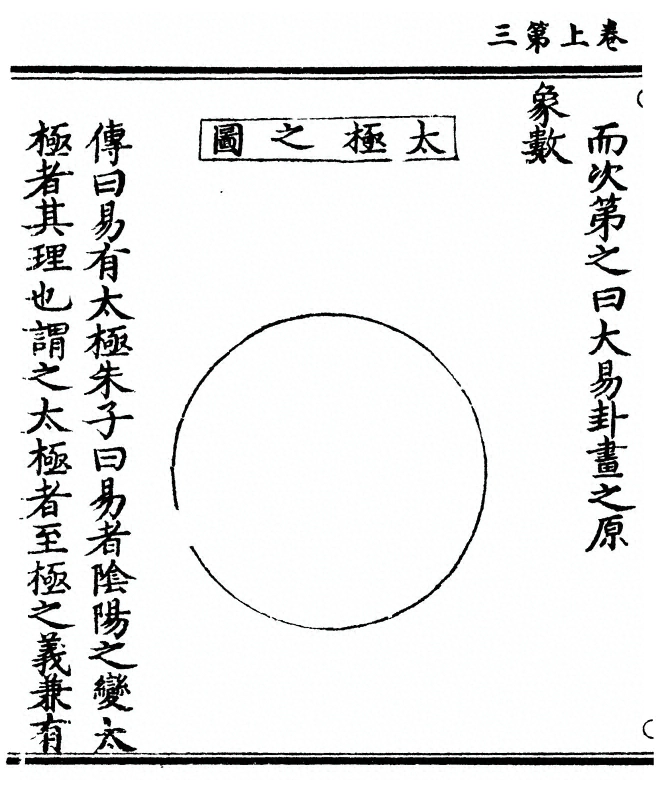 卷上第三
而次第之曰大易卦畫之原
象數
太極之圖
傳曰易有太極朱子曰易者陰陽之變太
極者其理也謂之太極者至極之義兼有